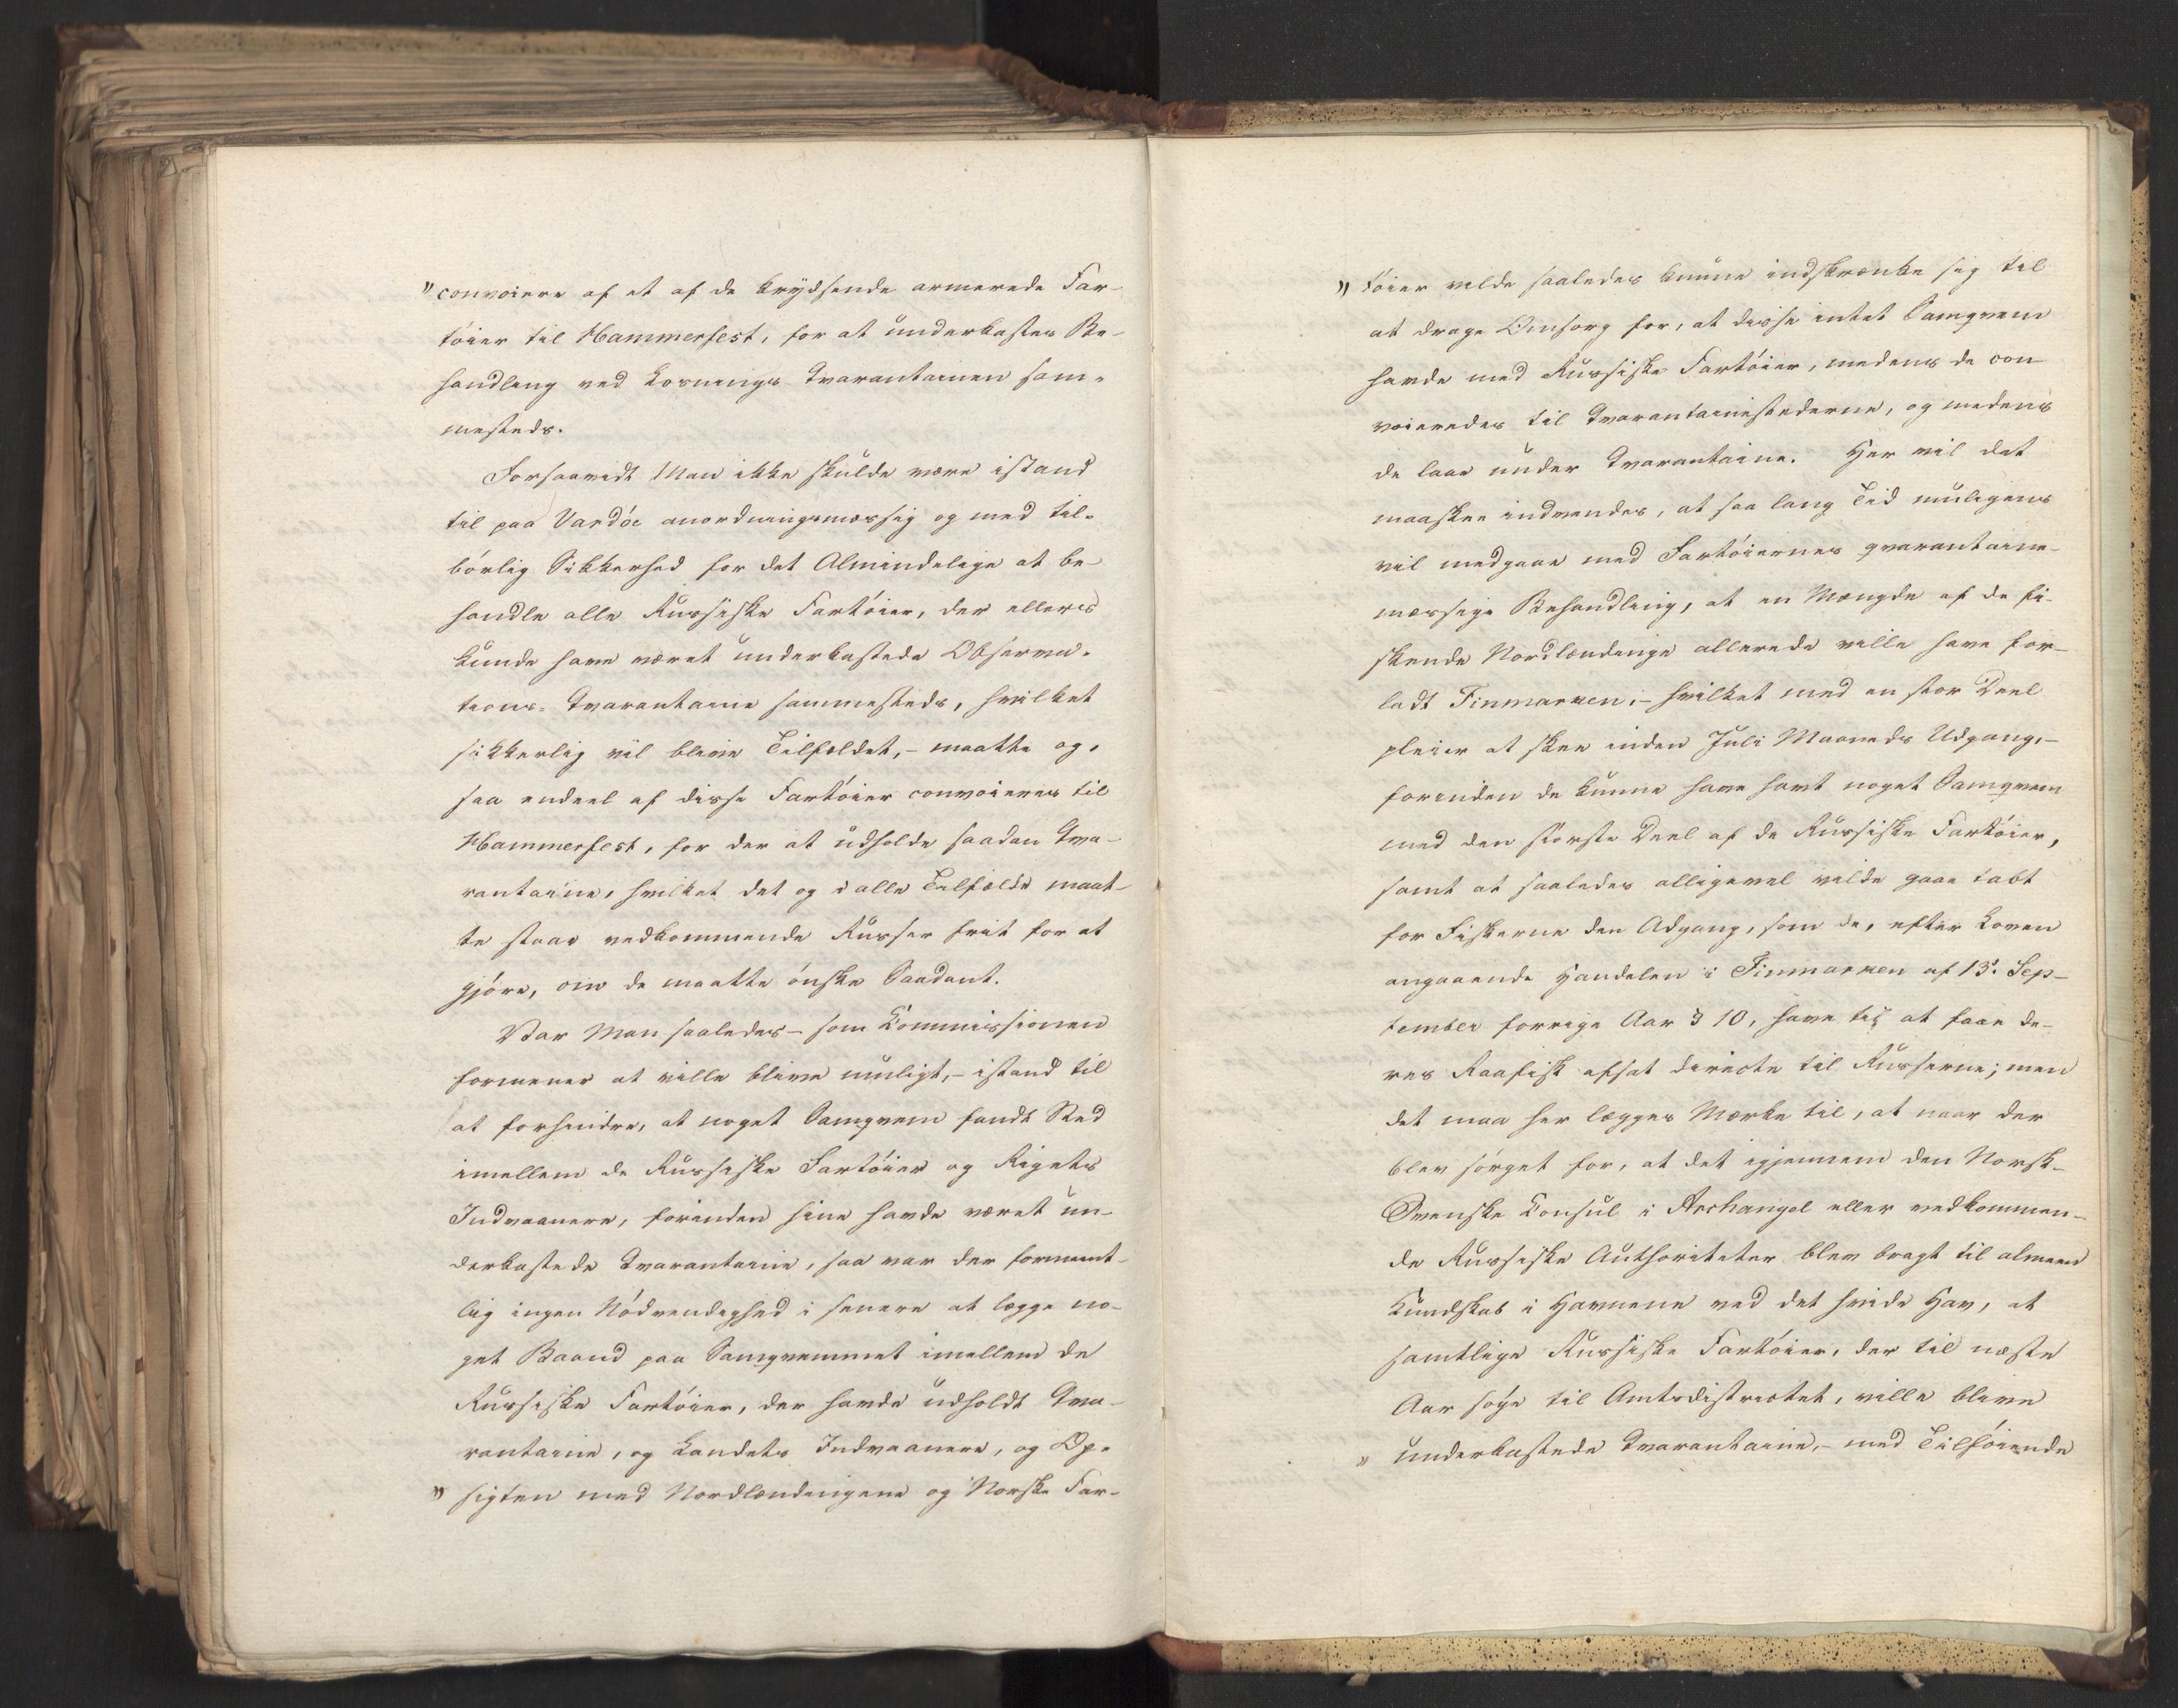 "convoiere af et af de krydsende armerede Far-
tøier til Hammerfest, for at underkastes Be-
handling ved Losnings-Qvarantainen sam-
mesteds.
Forsaavidt Man ikke skulde være istand
til paa Vardöe anordningsmæssig og med til-
børlig Sikkerhed for det Almindelige at be-
handle alle Russiske Fartøier, der ellers
kunde have været underkastede Observa-
tions-Qvarantaine sammesteds, hvilket
sikkerlig vil blive Tilfældet, – maatte og-
saa endeel af disse Fartøier convoieres til
Hammerfest, for der at udholde saadan Qva-
rantaine, hvilket det og i alle Tilfælde maat-
te staae vedkommende Russer frit for at
gjøre, om de maatte ønske Saadant.
Var Man saaledes – som Commissionen
formener at ville blive muligt, – istand til
at forhindre, at noget Samqvem fandt Sted
imellem de Russiske Fartøier og Rigets
Indvaanere, forinden hine havde været un-
derkastede Qvarantaine, saa var der forment-
lig ingen Nödvendighed i senere at lægge no-
get Baand paa Samqvemmet imellem de
Russiske Fartøier, der havde udholdt Qva-
rantaine, og Landets Indvaanere, og Op-
" sigten med Nordlændingene og Norske Far-
" tøier vilde saaledes kunne indskrænke sig til
at drage Omsorg for, at disse intet Samqvem
havde med Russiske Fartøier, medens de con-
voieredes til Qvarantainestederne, og medens
de laae under Qvarantaine. Her vil det
maaskee indvendes, at saa lang Tid muligens
vil medgaae med Fartøiernes qvarantaine-
mæssige Behandling, at en Mængde af de fi-
skende Nordlændinge allerede ville have for-
ladt Finmarken, – hvilket med en stor Deel
pleier at skee inden Juli Maaneds Udgang, –
forinden de kunne have havt noget Samqvem
med den største Deel af de Russiske Fartøier,
samt at saaledes alligevel vilde gaae tabt
for Fiskerne den Adgang, som de, efter Loven
angaaende Handelen i Finmarken af 13. Sep-
tember forrige Aar § 10, have til at faae de-
res Raafisk afsat directe til Russerne; men
det maa her lægges Mærke til, at naar der
blev sørget for, at det igjennem den Norsk-
Svenske Consul i Archangel eller vedkommen-
de Russiske Authoriteter blev bragt til almeen
Kundskab i Havnene ved det hvide Hav, at
samtlige Russiske Fartøier, der til næste
Aar søge til Amtsdistrictet, ville blive
" underkastede Qvarantaine, – med Tilføiende